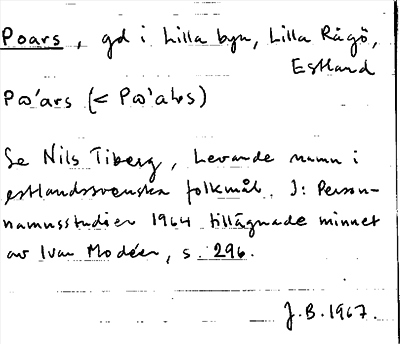 Poars, gd i Lilla byn, Lilla Rågö,
Estland
Pω'ars (< Pω'abs)
Se Nils Tiberg, Levande namn i
estlandssvenska folkmål. I: Person-
namnsstudier 1964 tillägnade minnet
av Ivar Modéer, s. 296.
J.B. 1967.